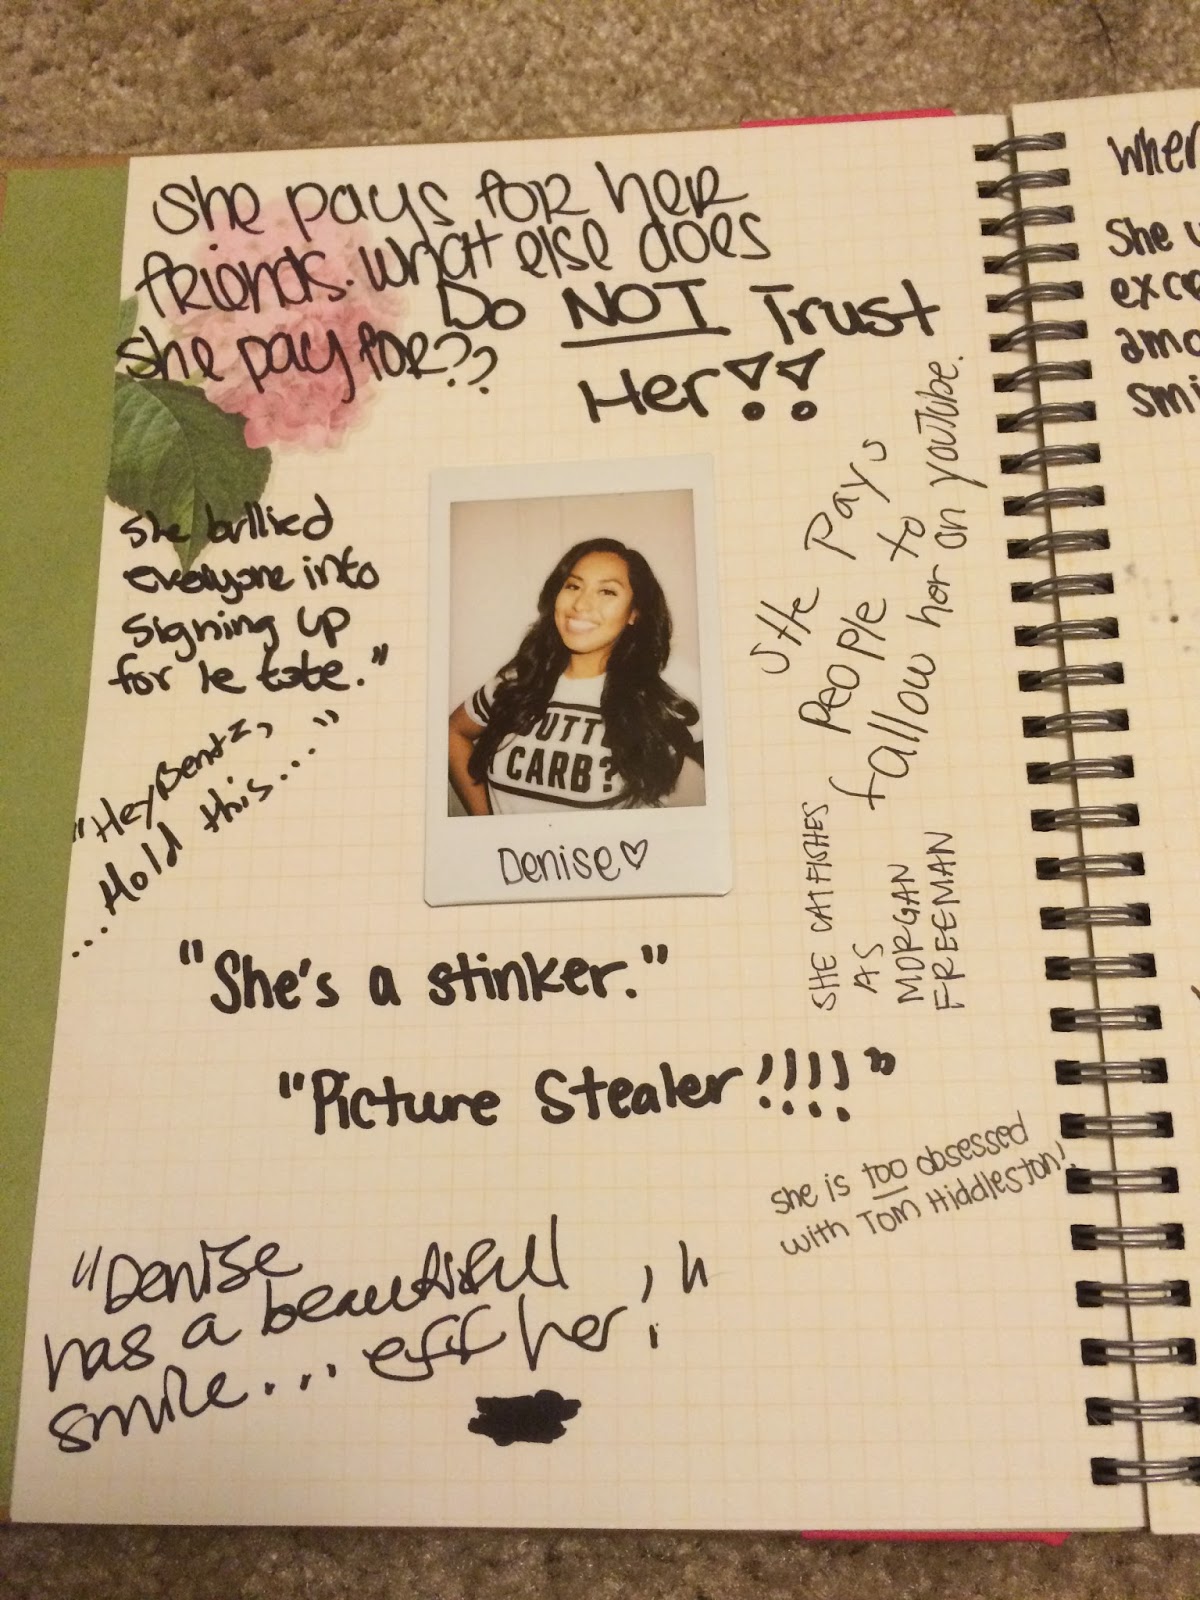 She pays for her
friends. What else does
she pay for??
Do NOT Trust
Her!!
she bullied
everyone into
signing up
for le tote."
"Hey Bentz,
....Hold this...."
BUTT
CARB?
Denise♡
She Pays
People to
fallow her on YouTube.
SHE CATFISHES
AS
MORGAN
FREEMAN
"She's a stinker."
"Picture Stealer!!!!"
She is too obsessed
with Tom Hiddleston!
"Denise
has a beautiful
smile... eff her!"
She